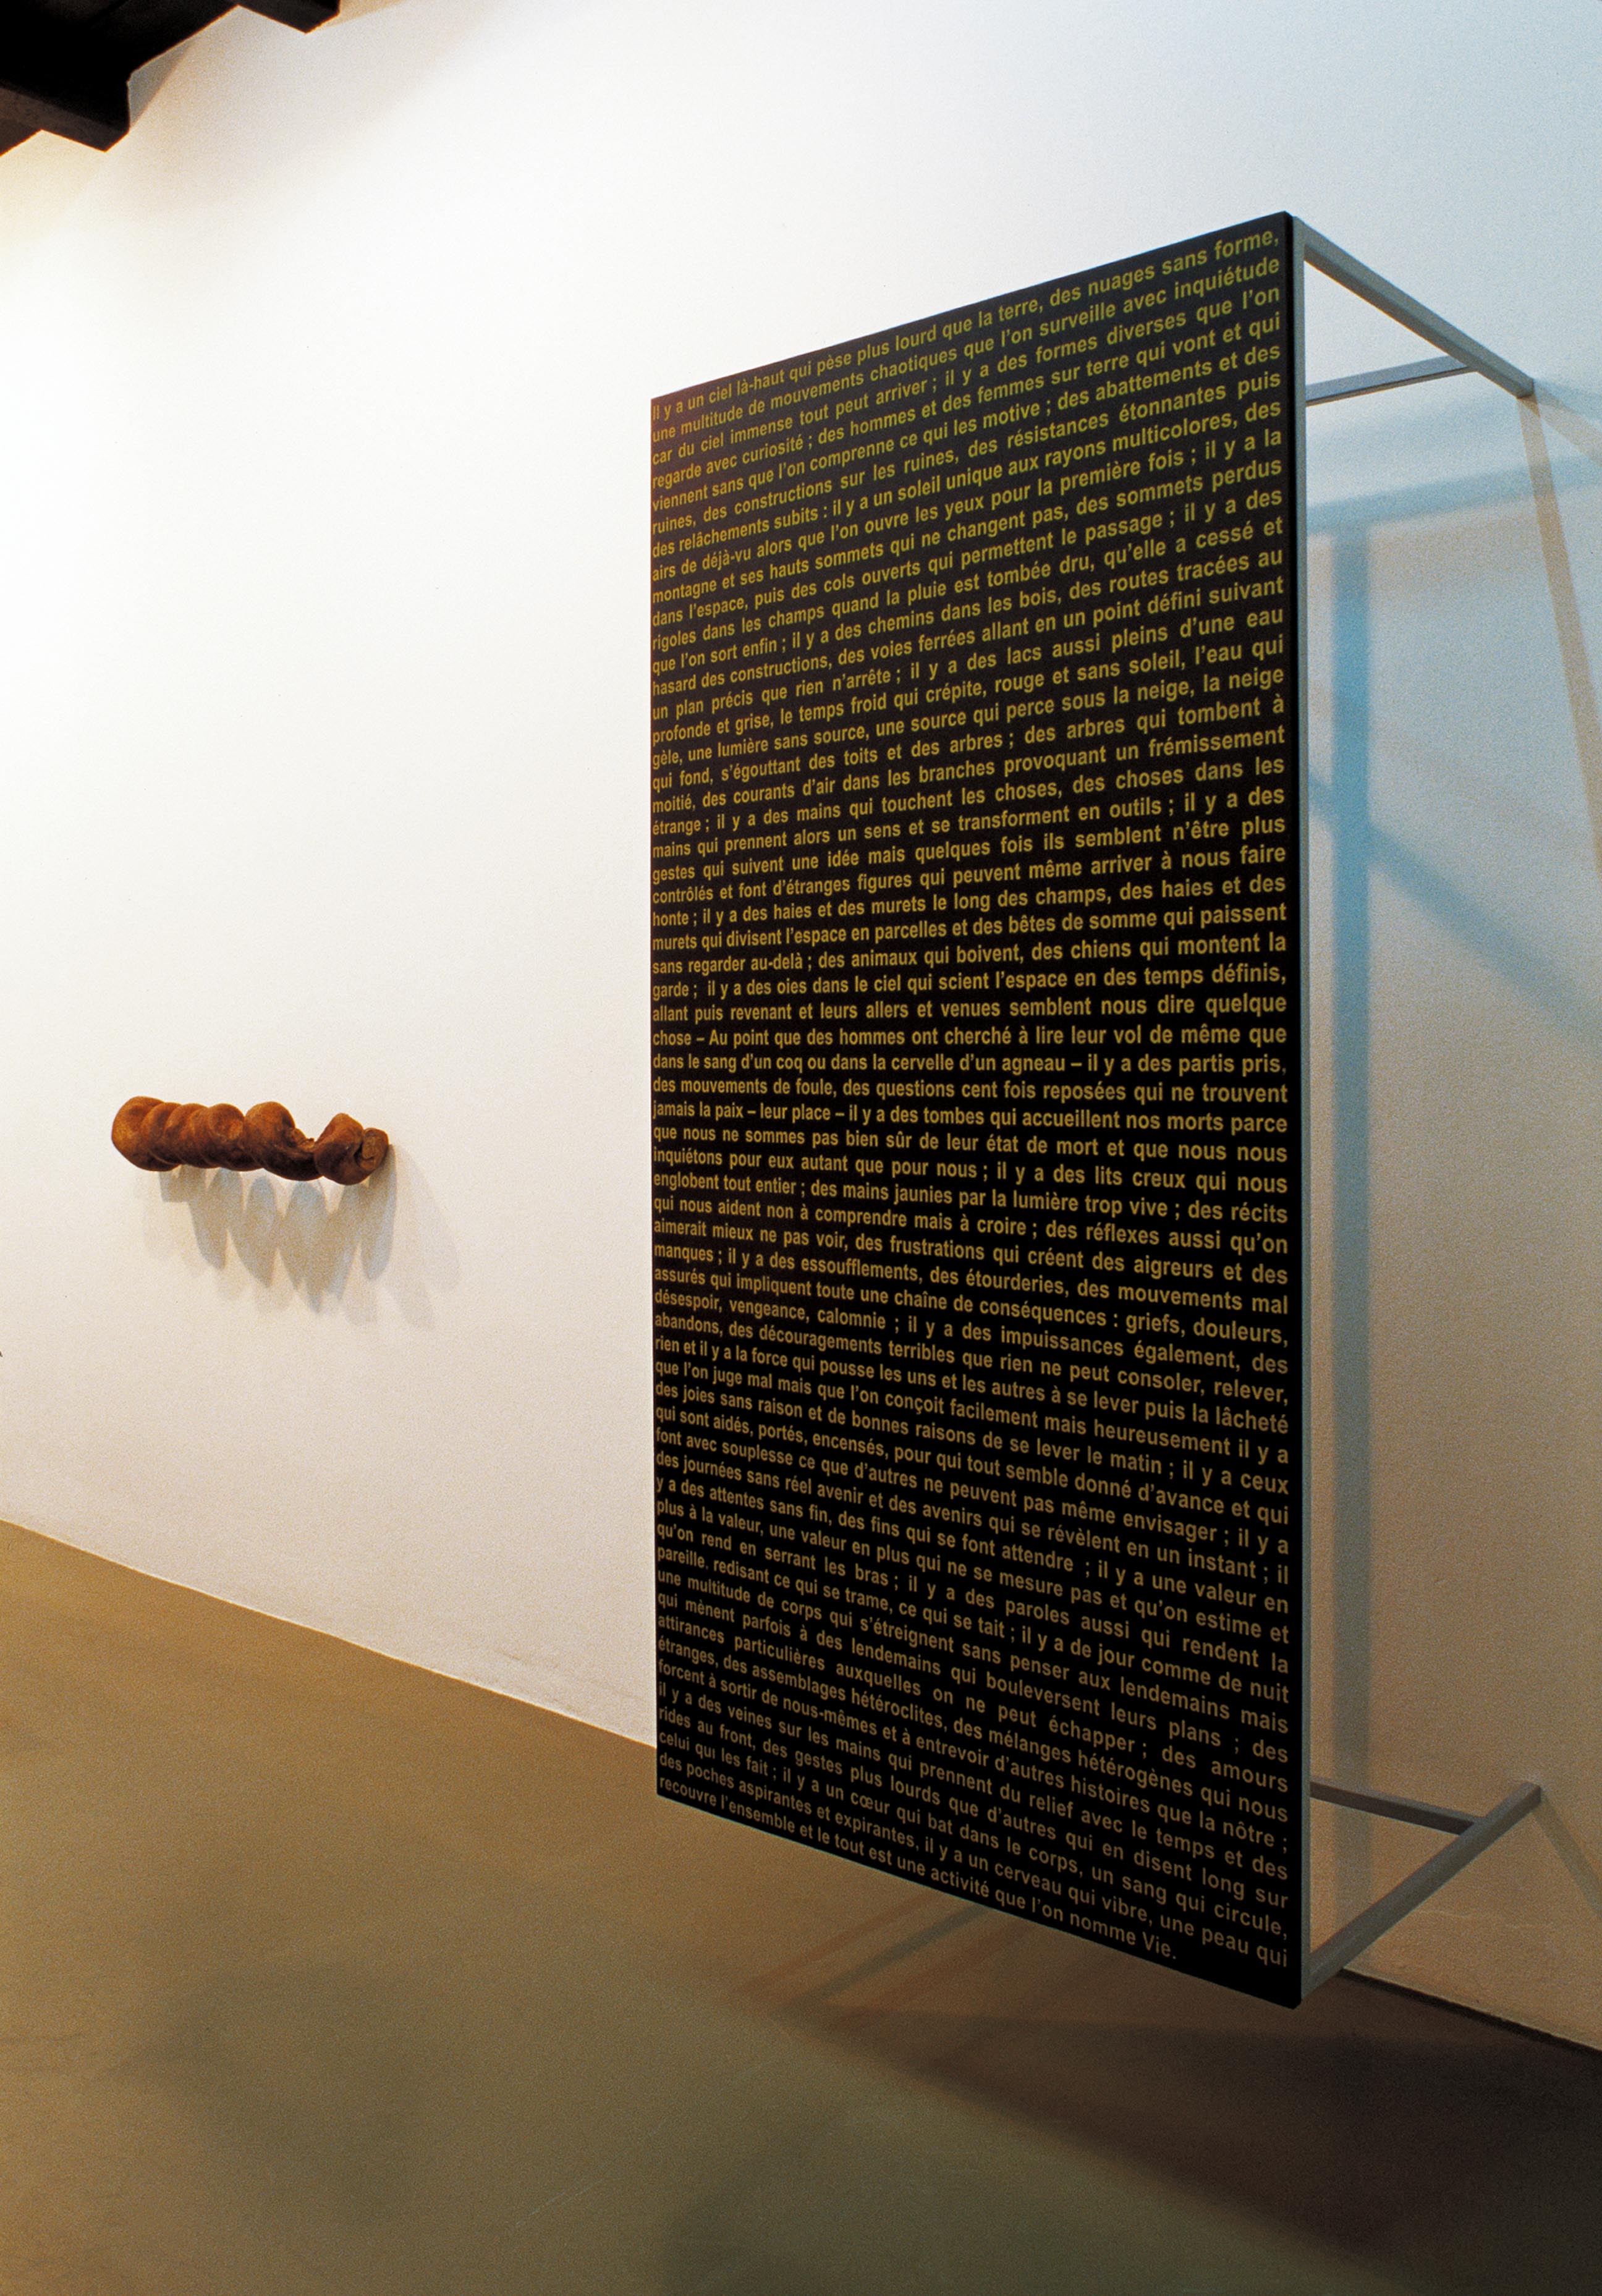 Il y a un ciel là-haut qui pèse plus lourd que la terre, des nuages sans forme,
une multitude de mouvements chaotiques que l'on surveille avec inquiétude
car du ciel immense tout peut arriver ; il y a des formes diverses que l'on
regarde avec curiosité ; des hommes et des femmes sur terre qui vont et qui
viennent sans que l'on comprenne ce qui les motive ; des abattements et des
ruines, des constructions sur les ruines, des résistances étonnantes puis
des relâchements subits : il y a un soleil unique aux rayons multicolores, des
airs de déjà-vu alors que l'on ouvre les yeux pour la première fois ; il y a la
montagne et ses hauts sommets qui ne changent pas, des sommets perdus
dans l'espace, puis des cols ouverts qui permettent le passage ; il y a des
rigoles dans les champs quand la pluie est tombée dru, qu'elle a cessé et
que l'on sort enfin ; il y a des chemins dans les bois, des routes tracées au
hasard des constructions, des voies ferrées allant en un point défini suivant
un plan précis que rien n'arrête ; il y a des lacs aussi pleins d'une eau
profonde et grise, le temps froid qui crépite, rouge et sans soleil, l'eau qui
gèle, une lumière sans source, une source qui perce sous la neige, la neige
qui fond, s'égouttant des toits et des arbres ; des arbres qui tombent à
moitié, des courants d'air dans les branches provoquant un frémissement
étrange ; il y a des mains qui touchent les choses, des choses dans les
mains qui prennent alors un sens et se transforment en outils ; il y a des
gestes qui suivent une idée mais quelques fois ils semblent n'être plus
contrôlés et font d'étranges figures qui peuvent même arriver à nous faire
honte ; il y a des haies et des murets le long des champs, des haies et des
murets qui divisent l'espace en parcelles et des bêtes de somme qui paissent
sans regarder au-delà ; des animaux qui boivent, des chiens qui montent la
garde ; il y a des oies dans le ciel qui scient l'espace en des temps définis,
allant puis revenant et leurs allers et venues semblent nous dire quelque
chose – Au point que des hommes ont cherché à lire leur vol de même que
dans le sang d'un coq ou dans la cervelle d'un agneau – il y a des partis pris,
des mouvements de foule, des questions cent fois reposées qui ne trouvent
jamais la paix – leur place – il y a des tombes qui accueillent nos morts parce
que nous ne sommes pas bien sûr de leur état de mort et que nous nous
inquiétons pour eux autant que pour nous ; il y a des lits creux qui nous
englobent tout entier ; des mains jaunies par la lumière trop vive ; des récits
qui nous aident non à comprendre mais à croire ; des réflexes aussi qu'on
aimerait mieux ne pas voir, des frustrations qui créent des aigreurs et des
manques ; il y a des essoufflements, des étourderies, des mouvements mal
assurés qui impliquent toute une chaîne de conséquences : griefs, douleurs,
désespoir, vengeance, calomnie ; il y a des impuissances également, des
abandons, des découragements terribles que rien ne peut consoler, relever,
rien et il y a la force qui pousse les uns et les autres à se lever puis la lâcheté
que l'on juge mal mais que l'on conçoit facilement mais heureusement il y a
des joies sans raison et de bonnes raisons de se lever le matin ; il y a ceux
qui sont aidés, portés, encensés, pour qui tout semble donné d'avance et qui
font avec souplesse ce que d'autres ne peuvent pas même envisager ; il y a
des journées sans réel avenir et des avenirs qui se révèlent en un instant ; il
y a des attentes sans fin, des fins qui se font attendre ; il y a une valeur en
plus à la valeur, une valeur en plus qui ne se mesure pas et qu'on estime et
qu'on rend en serrant les bras ; il y a des paroles aussi qui rendent la
pareille. redisant ce qui se trame, ce qui se tait ; il y a de jour comme de nuit
une multitude de corps qui s'étreignent sans penser aux lendemains mais
qui mènent parfois à des lendemains qui bouleversent leurs plans ; des
attirances particulières auxquelles on ne peut échapper ; des amours
étranges, des assemblages hétéroclites, des mélanges hétérogènes qui nous
forcent à sortir de nous-mêmes et à entrevoir d'autres histoires que la nôtre ;
il y a des veines sur les mains qui prennent du relief avec le temps et des
rides au front, des gestes plus lourds que d'autres qui en disent long sur
celui qui les fait ; il y a un cœur qui bat dans le corps, un sang qui circule,
des poches aspirantes et expirantes, il y a un cerveau qui vibre, une peau qui
recouvre l'ensemble et le tout est une activité que l'on nomme Vie.